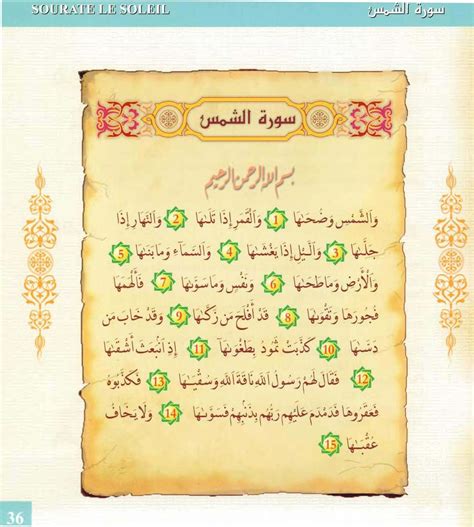 SOURATE LE SOLEIL سورة الشمس
سورة الشمس
بسم الله الرحمن الرحيم
وَالشَّمْسِ وَضُحَىٰهَا 1 وَالْقَمَرِ إِذَا تَلَىٰهَا 2 وَالنَّهَارِ إِذَا
جَلَّىٰهَا 3 وَالَّيْلِ إِذَا يَغْشَىٰهَا 4 وَالسَّمَآءِ وَمَا بَنَىٰهَا 5
وَالْأَرْضِ وَمَا طَحَىٰهَا 6 وَنَفْسٍ وَمَا سَوَّىٰهَا 7 فَأَلْهَمَهَا
فُجُورَهَا وَتَقْوَىٰهَا 8 قَدْ أَفْلَحَ مَن زَكَّىٰهَا 9 وَقَدْ خَابَ مَن
دَسَّىٰهَا 10 كَذَّبَتْ ثَمُودُ بِطَغْوَىٰهَا 11 إِذِ انۢبَعَثَ أَشْقَىٰهَا
12 فَقَالَ لَهُمْ رَسُولُ اللَّهِ نَاقَةَ اللَّهِ وَسُقْيَىٰهَا 13 فَكَذَّبُوهُ
فَعَقَرُوهَا فَدَمْدَمَ عَلَيْهِمْ رَبُّهُم بِذَنۢبِهِمْ فَسَوَّىٰهَا 14 وَلَا يَخَافُ
عُقْبَىٰهَا 15
36